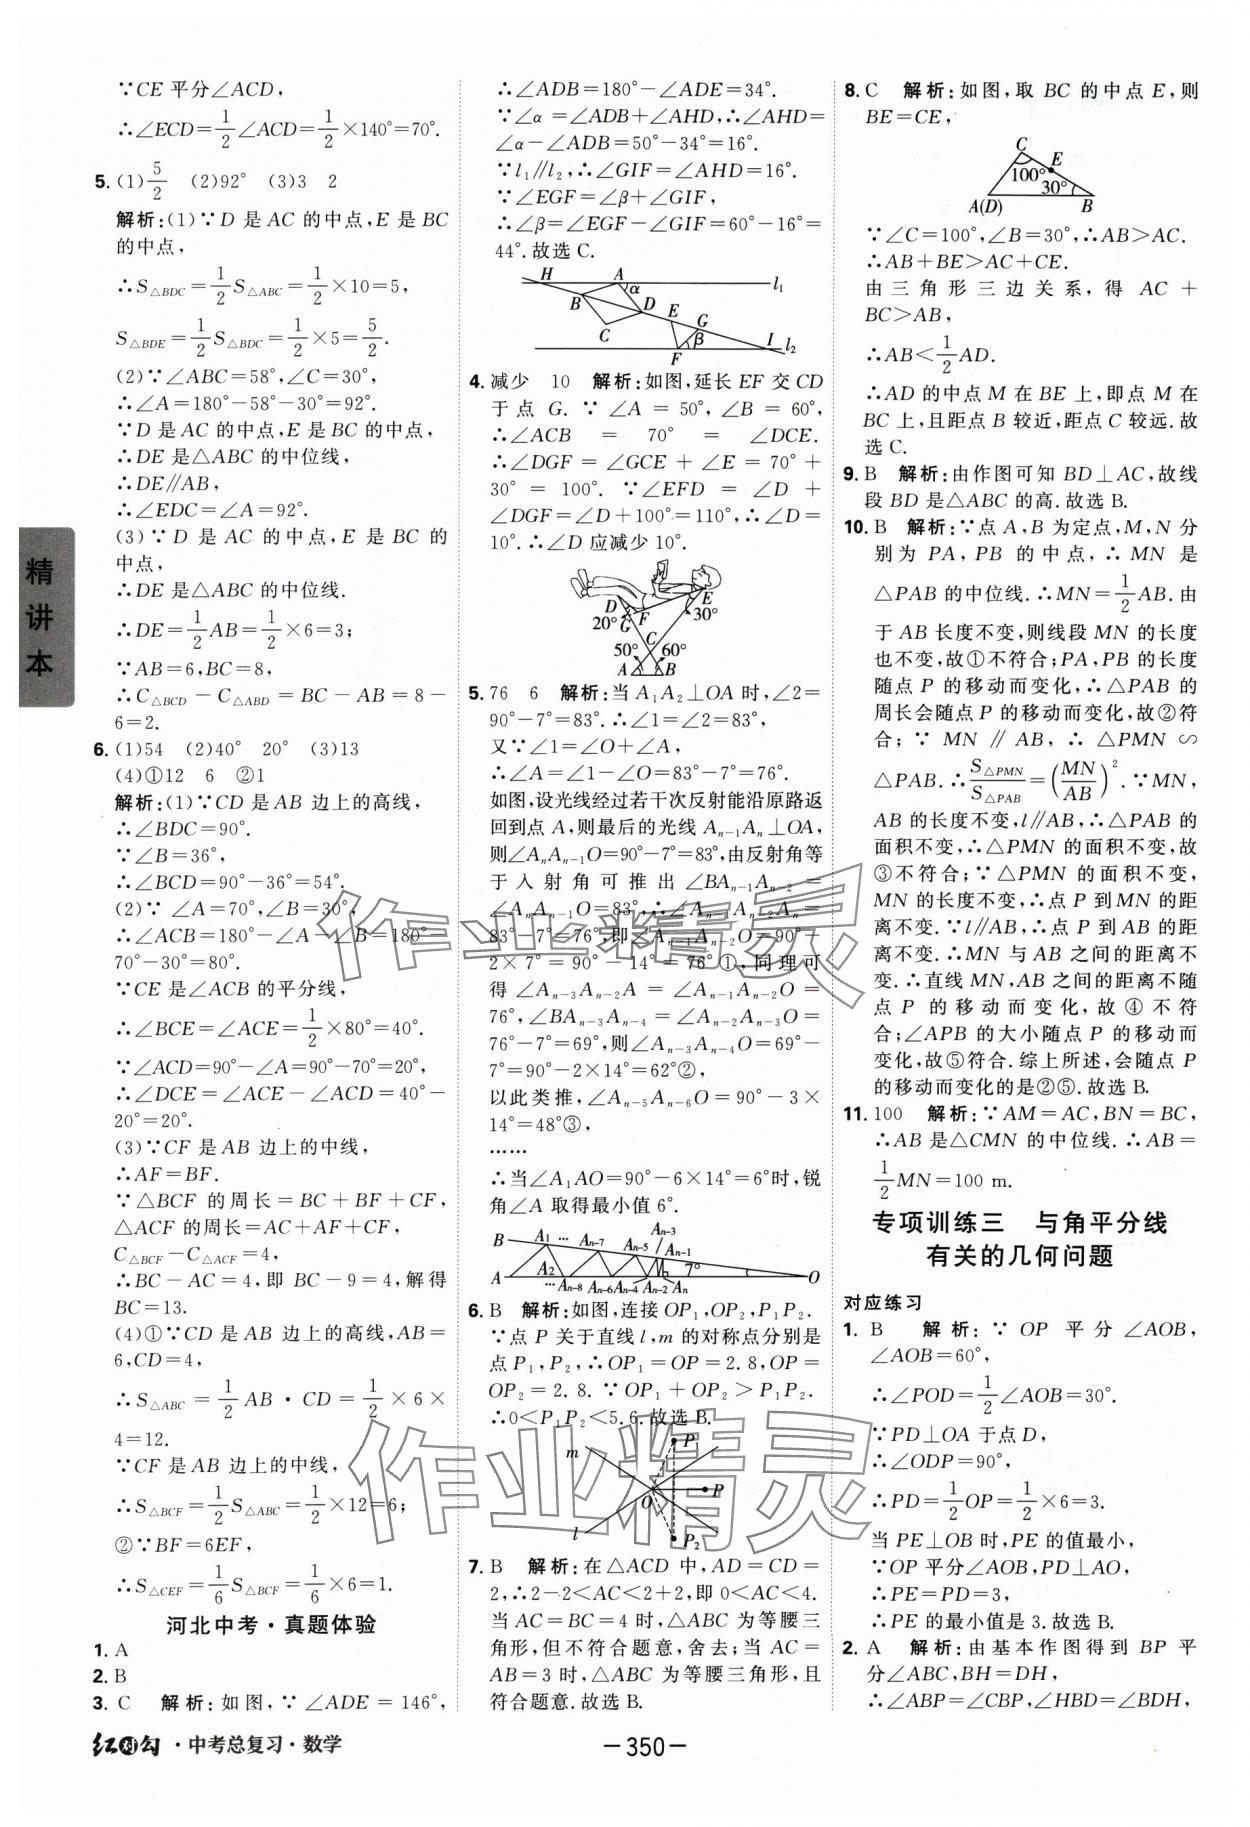 ∵CE 平分∠ACD，
∴∠ECD=1/2∠ACD=1/2×140°=70°.
5. (1)5/2 (2)92° (3)3 2
解析：(1)∵D 是 AC 的中点，E 是 BC
的中点，
∴S△BDC=1/2S△ABC=1/2×10=5，
S△BDE=1/2S△BDC=1/2×5=5/2.
(2)∵∠ABC=58°，∠C=30°，
∴∠A=180°-58°-30°=92°.
∵D 是 AC 的中点，E 是 BC 的中点，
∴DE 是△ABC 的中位线，
∴DE∥AB，
∴∠EDC=∠A=92°.
(3)∵D 是 AC 的中点，E 是 BC 的
中点，
∴DE 是△ABC 的中位线.
∴DE=1/2AB=1/2×6=3；
∵AB=6，BC=8，
∴C△BCD-C△ABD=BC-AB=8-
6=2.
6. (1)54 (2)40° 20° (3)13
(4)①12 6 ②1
解析：(1)∵CD 是 AB 边上的高线，
∴∠BDC=90°.
∵∠B=36°，
∴∠BCD=90°-36°=54°.
(2)∵∠A=70°，∠B=30°，
∴∠ACB=180°-∠A-∠B=180°-
70°-30°=80°.
∵CE 是∠ACB 的平分线，
∴∠BCE=∠ACE=1/2×80°=40°.
∵∠ACD=90°-∠A=90°-70°=20°，
∴∠DCE=∠ACE-∠ACD=40°-
20°=20°.
(3)∵CF 是 AB 边上的中线，
∴AF=BF.
∵△BCF 的周长=BC+BF+CF，
△ACF 的周长=AC+AF+CF，
C△BCF-C△ACF=4，
∴BC-AC=4，即 BC-9=4，解得
BC=13.
(4)①∵CD 是 AB 边上的高线，AB=
6，CD=4，
∴S△ABC=1/2AB·CD=1/2×6×
4=12.
∵CF 是 AB 边上的中线，
∴S△BCF=1/2S△ABC=1/2×12=6；
②∵BF=6EF，
∴S△CEF=1/6S△BCF=1/6×6=1.
河北中考·真题体验
1. A
2. B
3. C 解析：如图，∵∠ADE=146°，
∴∠ADB=180°-∠ADE=34°.
∵∠α=∠ADB+∠AHD，∴∠AHD=
∠α-∠ADB=50°-34°=16°.
∵l1∥l2，∴∠GIF=∠AHD=16°.
∵∠EGF=∠β+∠GIF，
∴∠β=∠EGF-∠GIF=60°-16°=
44°.故选 C.
H A α l1
B D E G
C β I l2
F
4. 减少 10 解析：如图，延长 EF 交 CD
于点 G. ∵∠A=50°，∠B=60°，
∴∠ACB=70°=∠DCE.
∴∠DGF=∠GCE+∠E=70°+
30°=100°. ∵∠EFD=∠D+
∠DGF=∠D+100°=110°，∴∠D=
10°.∴∠D 应减少 10°.
D E
20° G F 30°
C
50° 60°
A B
5. 76 6 解析：当 A1A2⊥OA 时，∠2=
90°-7°=83°.∴∠1=∠2=83°，
又∵∠1=∠O+∠A，
∴∠A=∠1-∠O=83°-7°=76°.
如图，设光线经过若干次反射能沿原路返
回到点 A，则最后的光线 An-1An⊥OA，
则∠AnAn-1O=90°-7°=83°，由反射角等
于入射角可推出∠BAn-1An-2=
∠AnAn-1O=83°，∴∠An-1An-2An=
83°-7°=76°，即∠An-1An-2O=90°-
2×7°=90°-14°=76°①，同理可
得∠An-3An-2A=∠An-1An-2O=
76°，∠BAn-3An-4=∠An-2An-3O=
76°-7°=69°，则∠An-3An-4O=69°-
7°=90°-2×14°=62°②，
以此类推，∠An-5An-6O=90°-3×
14°=48°③，
……
∴当∠A1AO=90°-6×14°=6°时，锐
角∠A 取得最小值 6°.
B A1 … An-7 An-5 An-3 An-1
A A2 7° O
…An-8 An-6 An-4 An-2 An
6. B 解析：如图，连接 OP1，OP2，P1P2.
∵点 P 关于直线 l，m 的对称点分别是
点 P1，P2，∴OP1=OP=2.8，OP=
OP2=2.8. ∵OP1+OP2>P1P2.
∴0<P1P2<5.6.故选 B.
m P1
O P
l P2
7. B 解析：在△ACD 中，AD=CD=
2，∴2-2<AC<2+2，即 0<AC<4.
当 AC=BC=4 时，△ABC 为等腰三
角形，但不符合题意，舍去；当 AC=
AB=3 时，△ABC 为等腰三角形，且
符合题意.故选 B.
8. C 解析：如图，取 BC 的中点 E，则
BE=CE，
C E
100° 30°
A(D) B
∵∠C=100°，∠B=30°，∴AB>AC.
∴AB+BE>AC+CE.
由三角形三边关系，得 AC+
BC>AB，
∴AB<1/2AD.
∴AD 的中点 M 在 BE 上，即点 M 在
BC 上，且距点 B 较近，距点 C 较远.故
选 C.
9. B 解析：由作图可知 BD⊥AC，故线
段 BD 是△ABC 的高.故选 B.
10. B 解析：∵点 A，B 为定点，M，N 分
别为 PA，PB 的中点，∴MN 是
△PAB 的中位线.∴MN=1/2AB.由
于 AB 长度不变，则线段 MN 的长度
也不变，故①不符合；PA，PB 的长度
随点 P 的移动而变化，∴△PAB 的
周长会随点 P 的移动而变化，故②符
合；∵MN∥AB，∴△PMN∽
△PAB.∴S△PMN/S△PAB=(MN/AB)².∵MN，
AB 的长度不变，l∥AB，∴△PAB 的
面积不变，∴△PMN 的面积不变，故
③不符合；∵△PMN 的面积不变，
MN 的长度不变，∴点 P 到 MN 的距
离不变.∵l∥AB，∴点 P 到 AB 的距
离不变.∴MN 与 AB 之间的距离不
变.∴直线 MN，AB 之间的距离不随
点 P 的移动而变化，故④不符
合；∠APB 的大小随点 P 的移动而
变化，故⑤符合.综上所述，会随点 P
的移动而变化的是②⑤.故选 B.
11. 100 解析：∵AM=AC，BN=BC，
∴AB 是△CMN 的中位线.∴AB=
1/2MN=100 m.
专项训练三 与角平分线
有关的几何问题
对应练习
1. B 解析：∵OP 平分∠AOB，
∠AOB=60°，
∴∠POD=1/2∠AOB=30°.
∵PD⊥OA 于点 D，
∴∠ODP=90°，
∴PD=1/2OP=1/2×6=3.
当 PE⊥OB 时，PE 的值最小，
∵OP 平分∠AOB，PD⊥AO，
∴PE=PD=3，
∴PE 的最小值是 3.故选 B.
2. A 解析：由基本作图得到 BP 平
分∠ABC，BH=DH，
∴∠ABP=∠CBP，∠HBD=∠BDH，
精讲本
作业精灵
作业精灵
红对勾·中考总复习·数学
-350-